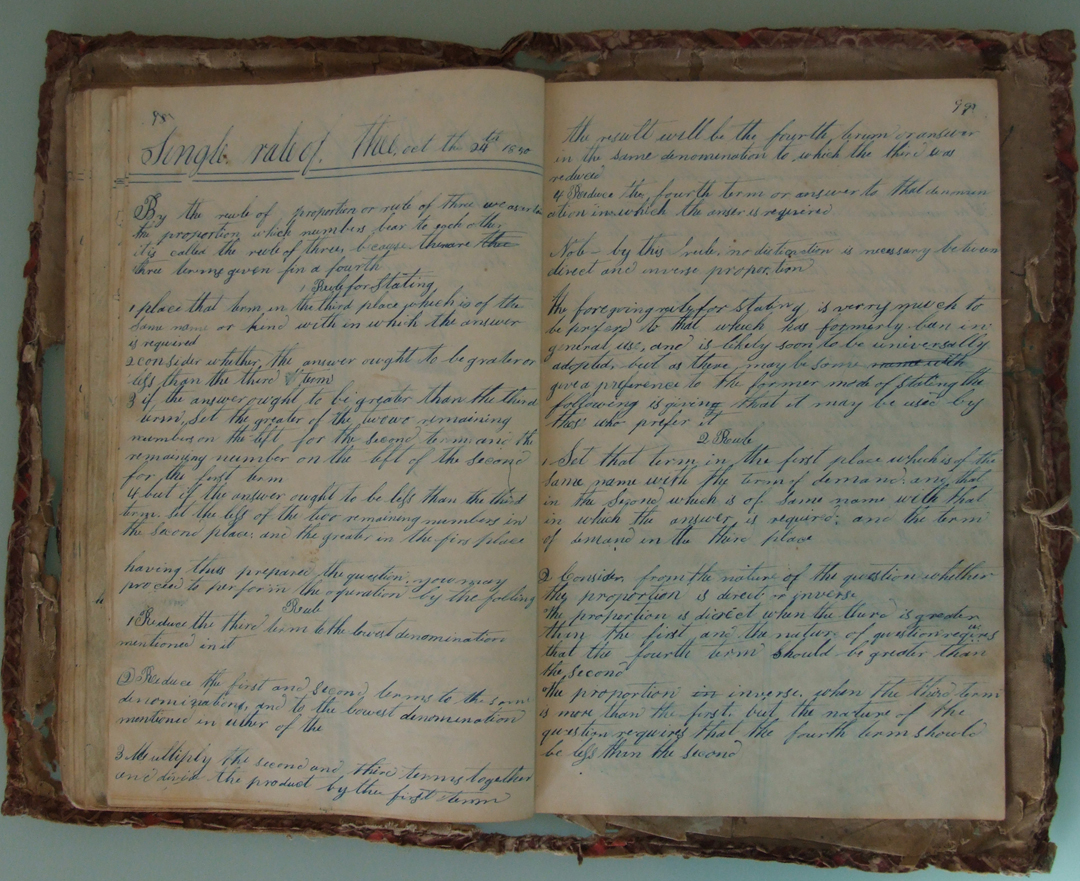 98
Single rule of three, oct the 24th 1840
By the rule of proportion or rule of three we
the proportion which numbers bear to each other
it is called the rule of three because there are
three terms given fin a fourth
1 Rule for Stating
1 place that term in the third place which is of the
same name or kind with in which the answer
is required
2 consider whether the answer ought to be grater or
less than the third term
3 if the answer ought to be greater than the third
term, Set the greater of the remaining
numbers on the left for the second term and the
remaining number on the left of the second
for the first term
4 but if the answer ought to be less than the third
term. let the less of the two remaining numbers in
the second place; and the greater in the firs place
having thus prepared the question; you may
proceed to perform the operation by the
Rule
1 Reduce the third term to the lowest denomination
mentioned in it
2 Reduce the first and second terms to the same
denominations, and to the lowest denomination
mentioned in either of the
3 Multiply the second and third terms together
and divide the product by the first term
99
the result will be the fourth term or answer
in the same denomination to which the third was
reduced
4 Reduce the fourth term or answer to that
ation in which the anser is required
Note – by this rule, no distination is necessary between
direct and inverse proportion
the foregoing rule for stating is very much to
be to that which has formerly ban in
general use, and is likely soon to be universally
adopted, but as there may be some
give a preference to the former mode of stating the
following is giving that it may be used by
thos who prefer it
2 Rule
1 Set that term in the first place which is of the
same name with the term of demand; any that
in the second which is of same name with that
in which the answer is required; and the term
of demand in the third place
2 Consider from the nature of the question whether
the proportion is direct or inverse
the proportion is direct when the third is greater
then the first and the nature of question
that the fourth term should be greater than
the second
the proportion in inverse, when the third term
is more than the first, but the nature of the
question requires that the fourth term should
be less then the second